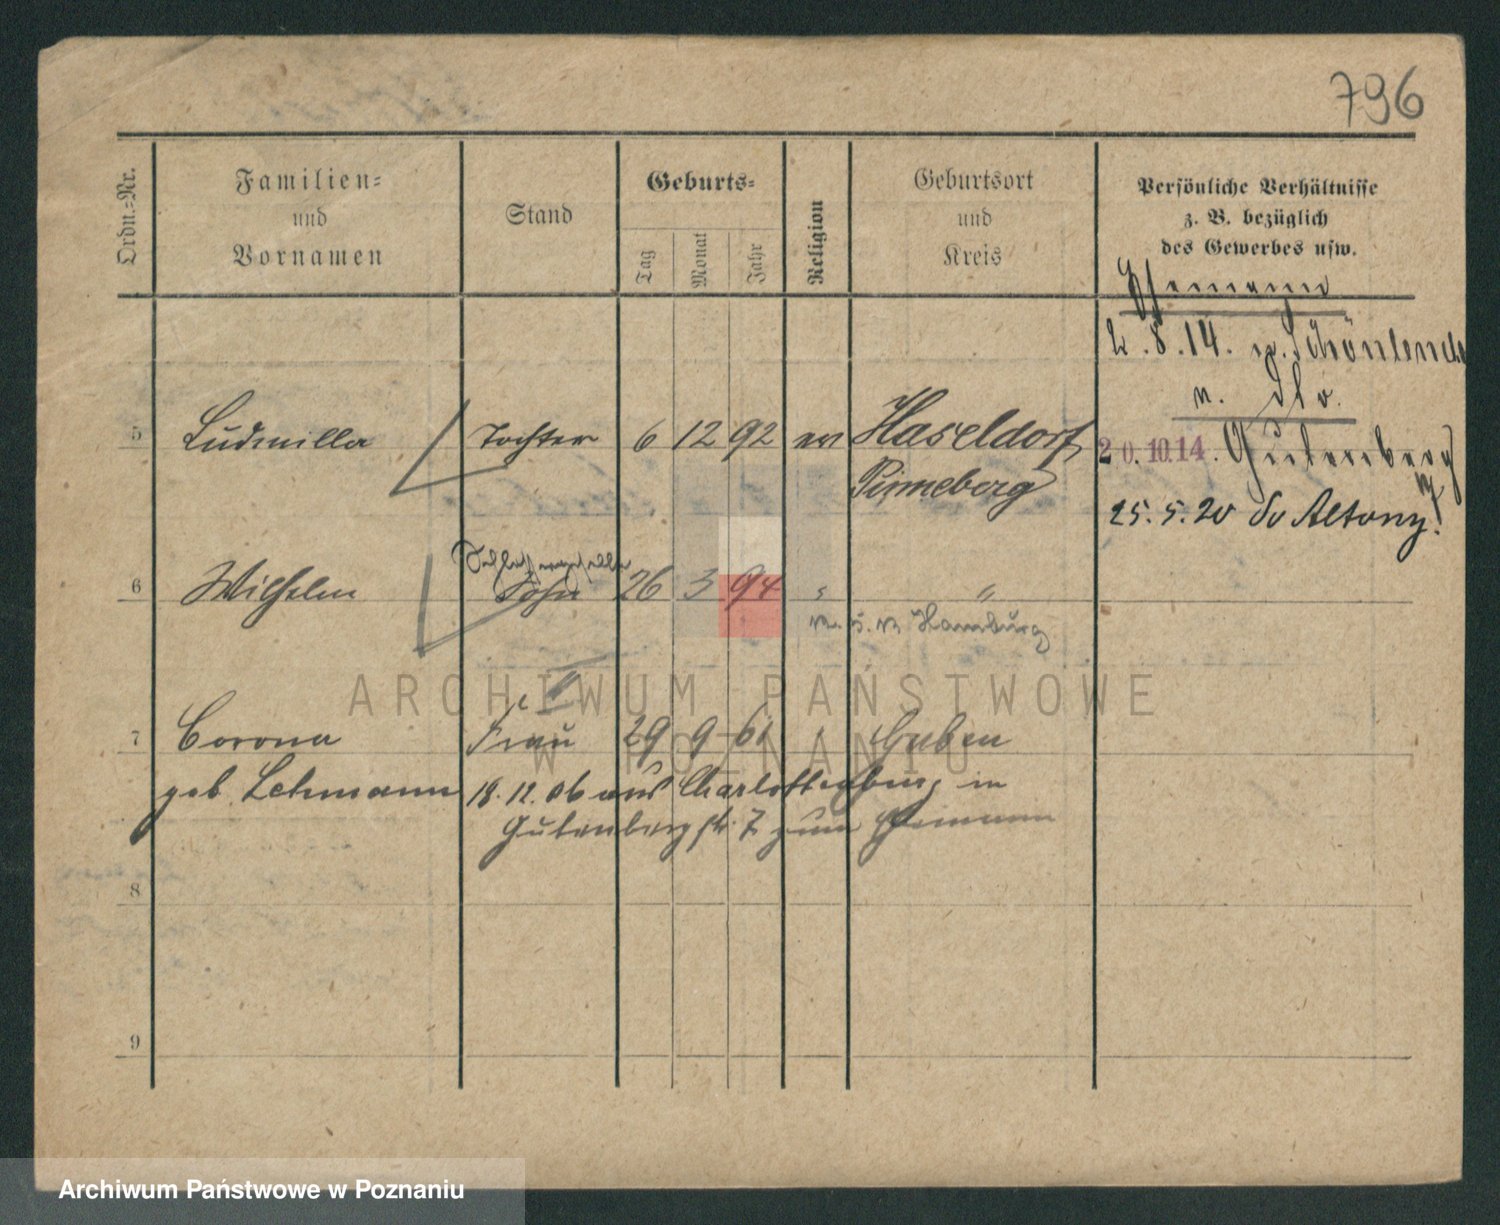 796
Ordn.-Nr.
Familien-
und
Vornamen
Stand
Geburts-
Tag
Monat
Jahr
Religion
Geburtsort
und
Kreis
Persönliche Verhältnisse
z. B. bezüglich
des Gewerbes usw.
2.8.14.
n. Dto.
5 Ludmilla Tochter 6 12 92 ev Haseldorf
Pinneberg
20.10.14. Gutenberg
25.5.20
6 Wilhelm Sohn 26 3 94 " "
Hamburg
ARCHIWUM PAŃSTWOWE
W POZNANIU
7 Corona Frau 29 9 61 " Guben
geb. Lehmann 18.12.06 aus Charlottenburg in
Gutenbergstr. 7 zum Ehemann
8
9
Archiwum Państwowe w Poznaniu